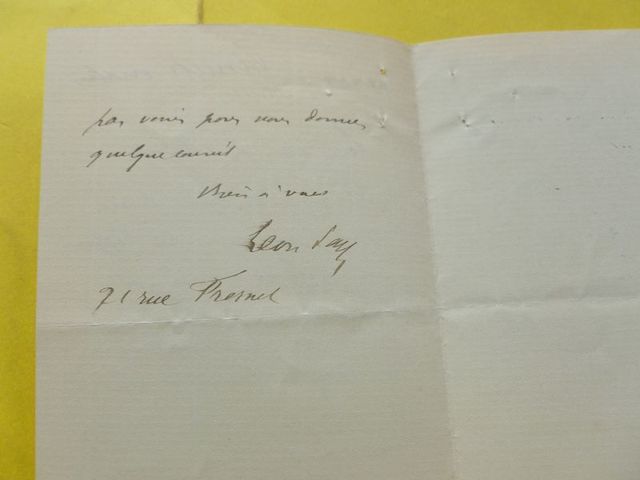 pas venir pour nous donner
quelque conseil
Bien à vous
Leon Say
21 rue Fresnel